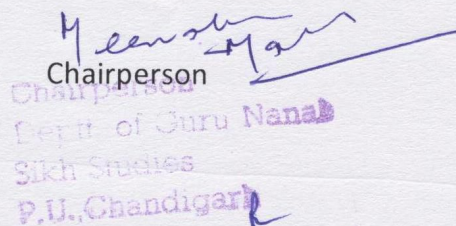 Chairperson
Chairperson
Deptt. of Guru Nanak
Sikh Studies
P.U., Chandigarh